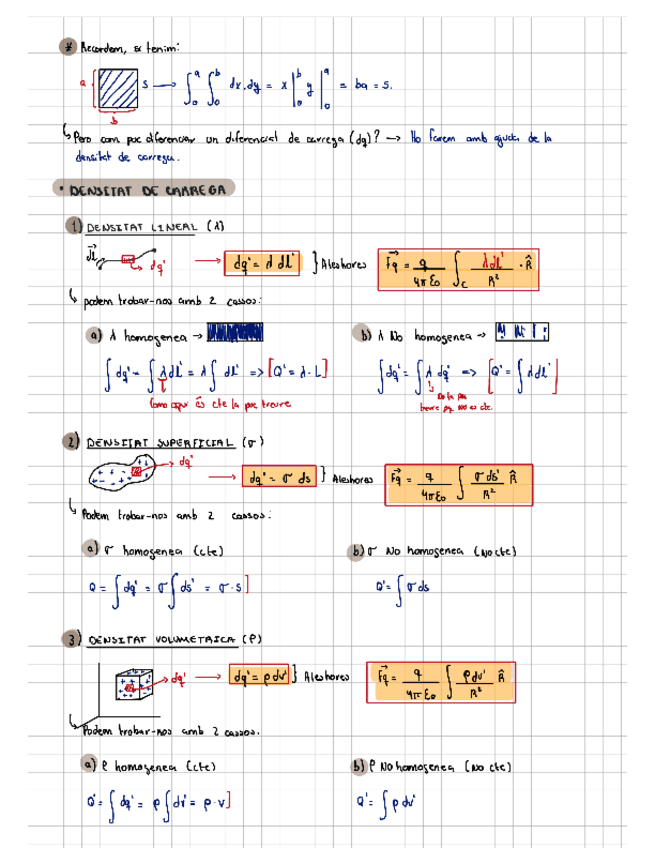 * Recordem, si tenim:
a S → ∫₀ᵃ ∫₀ᵇ dx.dy = x |₀ᵇ y |₀ᵃ = ba = S.
b
↳ Pero com puc diferenciar un diferencial de carrega (dq)? → Ho farem amb ajuda de la
densitat de carrega.
• DENSITAT DE CARREGA
1) DENSITAT LINEAL (λ)
dl' → dq' → dq' = λ dl' } Aleshores Fq = q/4πε₀ ∫c λdl'/R² · R̂
↳ podem trobar-nos amb 2 cassos:
a) λ homogenea → b) λ No homogenea →
∫dq' = ∫λdl' = λ∫dl' => [Q' = λ·L] ∫dq' = ∫λ dq' => [Q' = ∫λdl']
Como aqui és cte la puc treure No la puc
treure pq no es cte.
2) DENSITAT SUPERFICIAL (σ)
→ dq' → dq' = σ ds } Aleshores Fq = q/4πε₀ ∫ σ ds'/R² R̂
↳ Podem trobar-nos amb 2 cassos:
a) σ homogenea (cte) b) σ No homogenea (No cte)
Q = ∫dq' = σ∫ds' = σ·s] Q' = ∫σ ds
3) DENSITAT VOLUMETRICA (ρ)
→ dq' → dq' = ρ dv' } Aleshores Fq = q/4πε₀ ∫ ρ dv'/R² R̂
↳ Podem trobar-nos amb 2 cassos.
a) ρ homogenea (cte) b) ρ No homogenea (No cte)
Q' = ∫dq' = ρ∫dv' = ρ·v] Q' = ∫ρ dv'